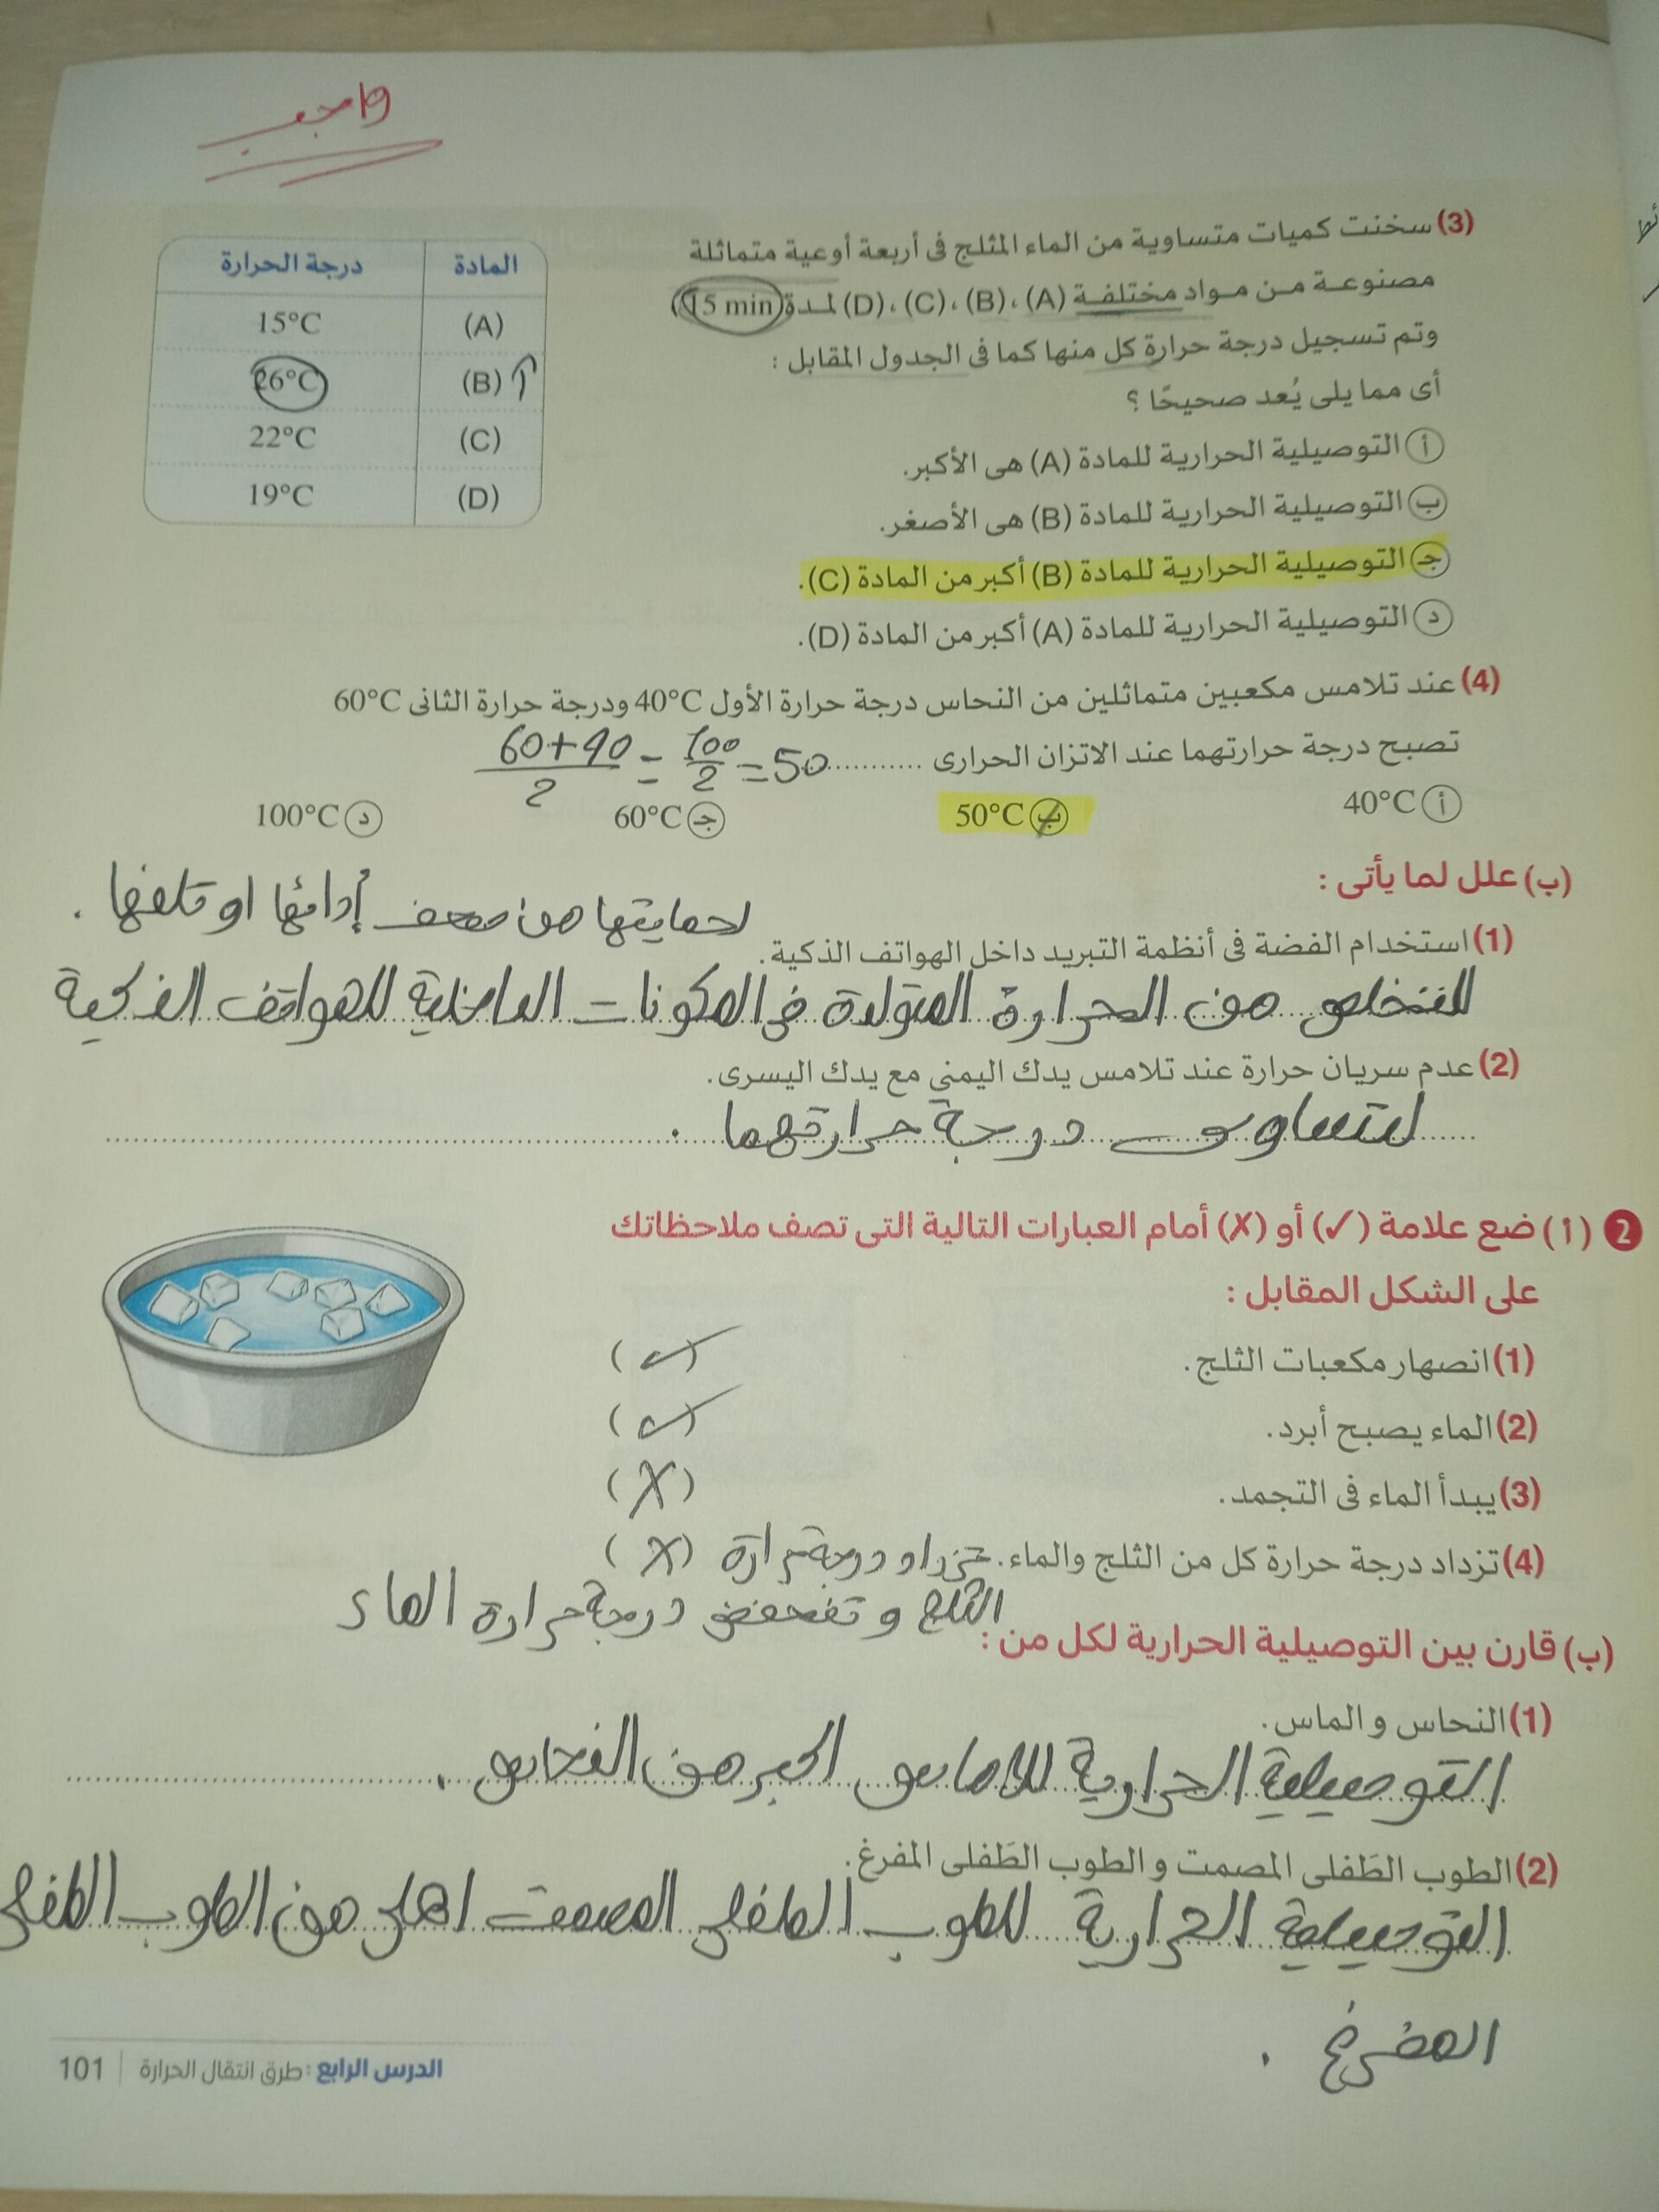 واجب
(3) سخنت كميات متساوية من الماء المثلج فى أربعة أوعية متماثلة
مصنوعة من مواد مختلفة (A)، (B)، (C)، (D) لمدة (15 min)
وتم تسجيل درجة حرارة كل منها كما فى الجدول المقابل :
أى مما يلى يُعد صحيحًا ؟
أ التوصيلية الحرارية للمادة (A) هى الأكبر.
ب التوصيلية الحرارية للمادة (B) هى الأصغر.
جـ التوصيلية الحرارية للمادة (B) أكبر من المادة (C).
د التوصيلية الحرارية للمادة (A) أكبر من المادة (D).
المادة درجة الحرارة
(A) 15°C
(B) 26°C
(C) 22°C
(D) 19°C
(4) عند تلامس مكعبين متماثلين من النحاس درجة حرارة الأول 40°C ودرجة حرارة الثانى 60°C
تصبح درجة حرارتهما عند الاتزان الحرارى ............
60+40/2 = 100/2 = 50
أ 40°C ب 50°C جـ 60°C د 100°C
(ب) علل لما يأتى :
(1) استخدام الفضة فى أنظمة التبريد داخل الهواتف الذكية.
لحمايتها من ضعف أدائها او تلفها .
للتخلص من الحرارة المتولدة فى المكونات الداخلية للهواتف الذكية
(2) عدم سريان حرارة عند تلامس يدك اليمني مع يدك اليسرى.
لتساوى درجة حرارتهما .
2 (أ) ضع علامة (✓) أو (✗) أمام العبارات التالية التى تصف ملاحظاتك
على الشكل المقابل :
(1) انصهار مكعبات الثلج. (✓)
(2) الماء يصبح أبرد. (✓)
(3) يبدأ الماء فى التجمد. (✗)
(4) تزداد درجة حرارة كل من الثلج والماء. تزداد درجة حرارة (✗)
الثلج و تنخفض درجة حرارة الماء
(ب) قارن بين التوصيلية الحرارية لكل من :
(1) النحاس والماس.
التوصيلية الحرارية للاماس اكبر من النحاس .
(2) الطوب الطَفلى المصمت والطوب الطَفلى المفرغ.
التوصيلية الحرارية للطوب الطفلى المصمت اعلى من الطوب الطفلى
المفرغ .
الدرس الرابع : طرق انتقال الحرارة | 101